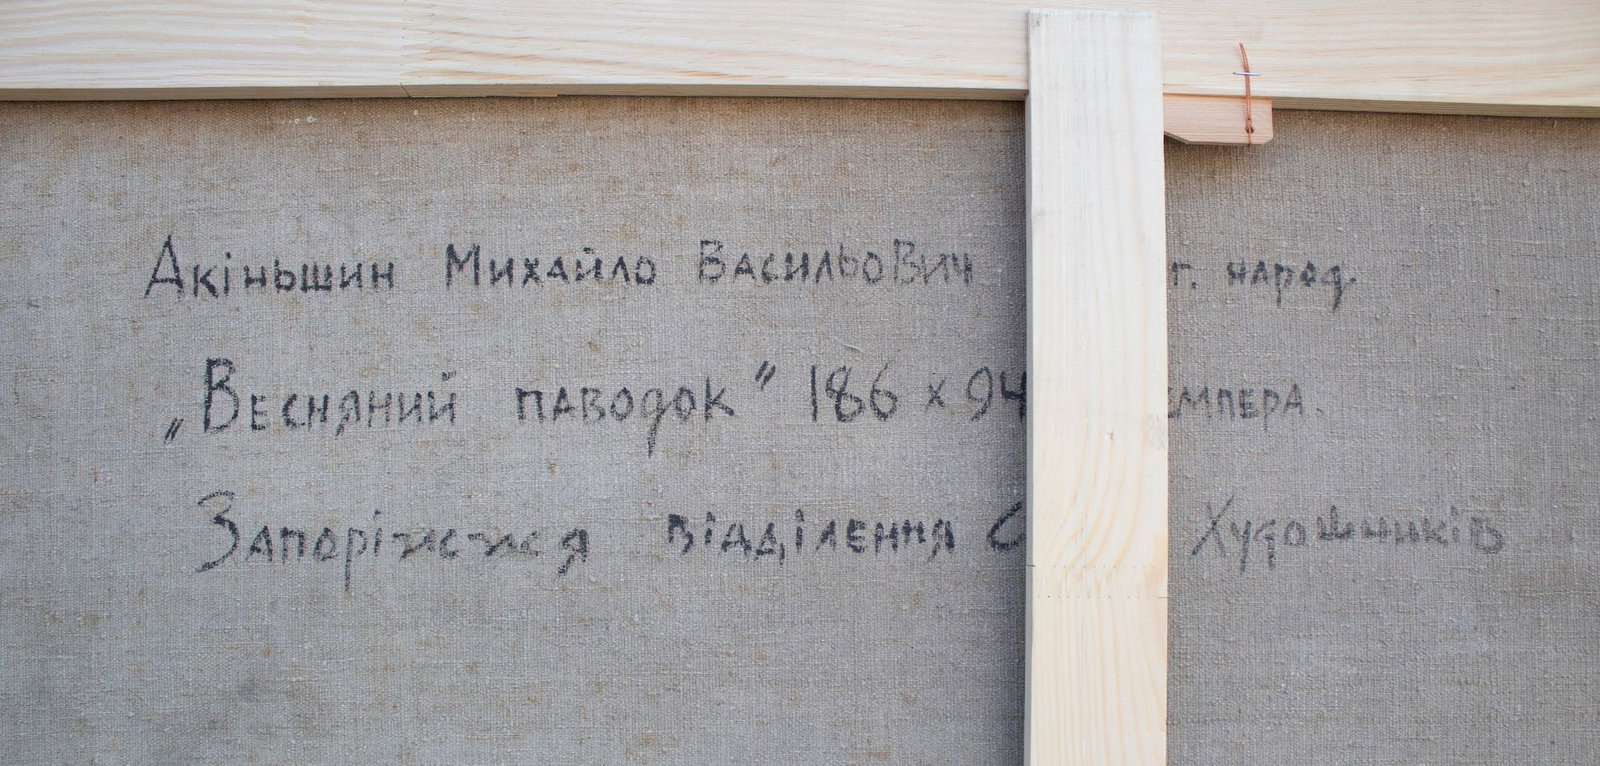 Акіньшин Михайло Васильович г. народ.
„Весняний паводок" 186 х 94 емпера.
Запоріжжя відділення С Художників